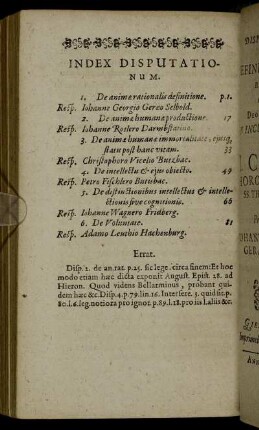 INDEX DISPUTATIO-
NUM.
1. De animæ rationalis definitione. p.1.
Resp. Iohanne Georgio Gereo Selbold.
2. De animæ humanæ productione. 17
Resp. Iohanne Rotlero Darmbstatino.
3. De animæ humanæ immortalitate, ejusq;
statu post hanc vitam. 33
Resp. Christophoro Vicelio Butzbac.
4. De intellectu & ejus obiecto. 49
Resp. Petro Fischlero Butisbac.
5. De distinctionibus intellectus & intelle-
ctionis sive cognitionis. 66
Resp. Iohanne Wagnero Fridberg.
6. De Voluntate. 81
Resp. Adamo Leuthio Hachenburg.
Errat.
Disp. 2. de an. rat. p. 25. sic lege. circa finem: Et hoc
modo etiam hæc dicta exponit August. Epist. 28. ad
Hieron. Quod videns Bellarminus, probant qui-
dem hæc &c. Disp. 4. p. 79. lin. 16. Intersere. 3. quid sit. p.
80. l. 6. leg. notiora pro ignot. p. 89. l. 18. pro iis l. aliis &c.